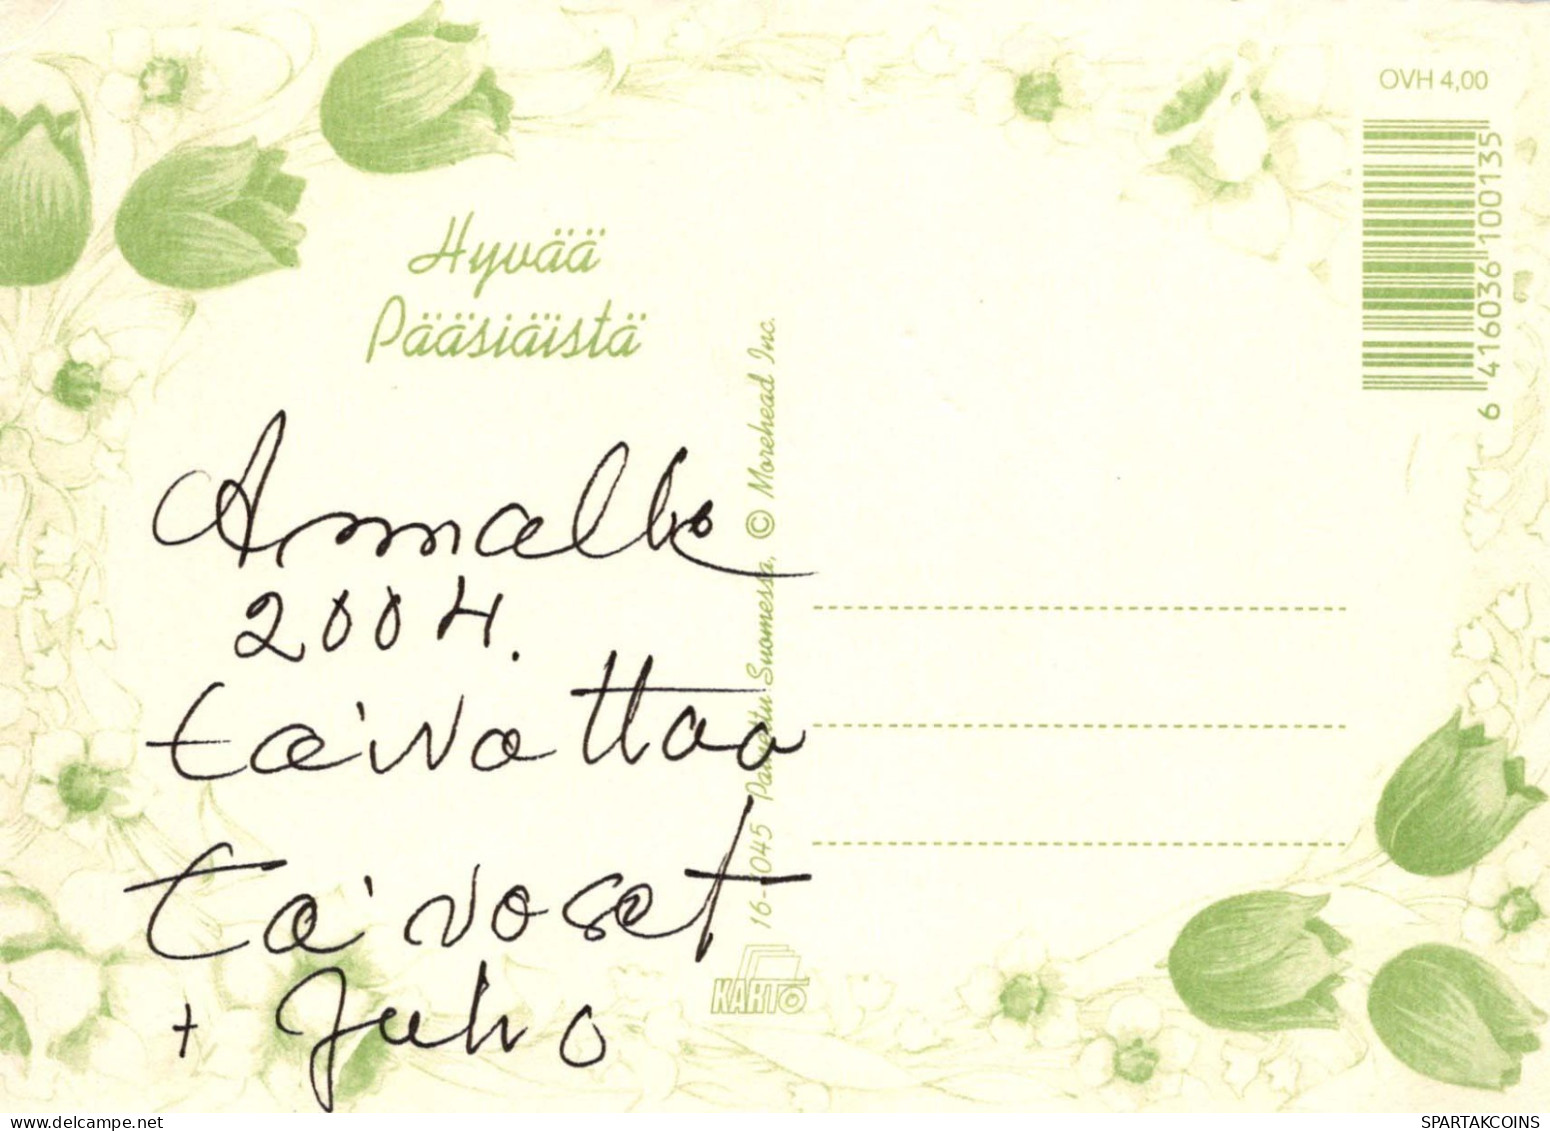 OVH 4,00
6 416036 100135
Hyvää
Pääsiäistä
Annalle
2004.
toivottaa
Toivoset
+ Juho
16-6045 Painettu Suomessa, © Morehead Inc.
KARTO
delcampe.net
SPARTAKCOINS